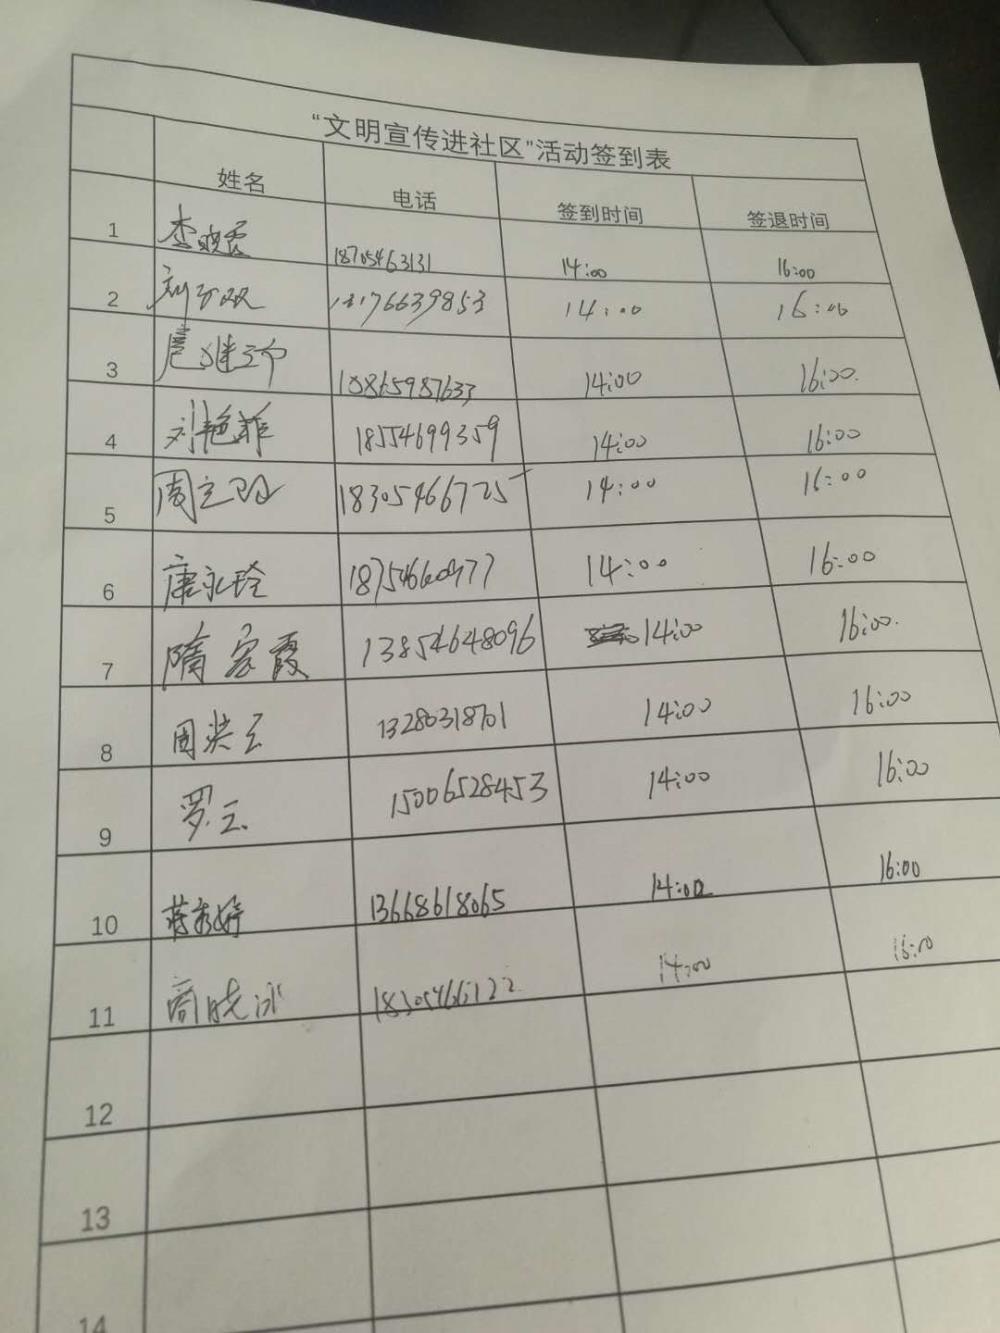 “文明宣传进社区”活动签到表
姓名 电话 签到时间 签退时间
1 李晓霞 18705463131 14:00 16:00
2 76639853 14:00 16:00
3 14:00 16:00.
4 刘艳菲 18554699359 14:00 16:00
5 周立 18305466725 14:00 16:00
6 唐永玲 14:00 16:00
7 隋家霞 13854648096 14:00 16:00.
8 周 云 13280318701 14:00 16:00
9 罗云 15006528453 14:00 16:00
10 蒋秀婷 13668618065 14:00 16:00
11 商晓冰 18305466122 14:00 16:00
12
13
14